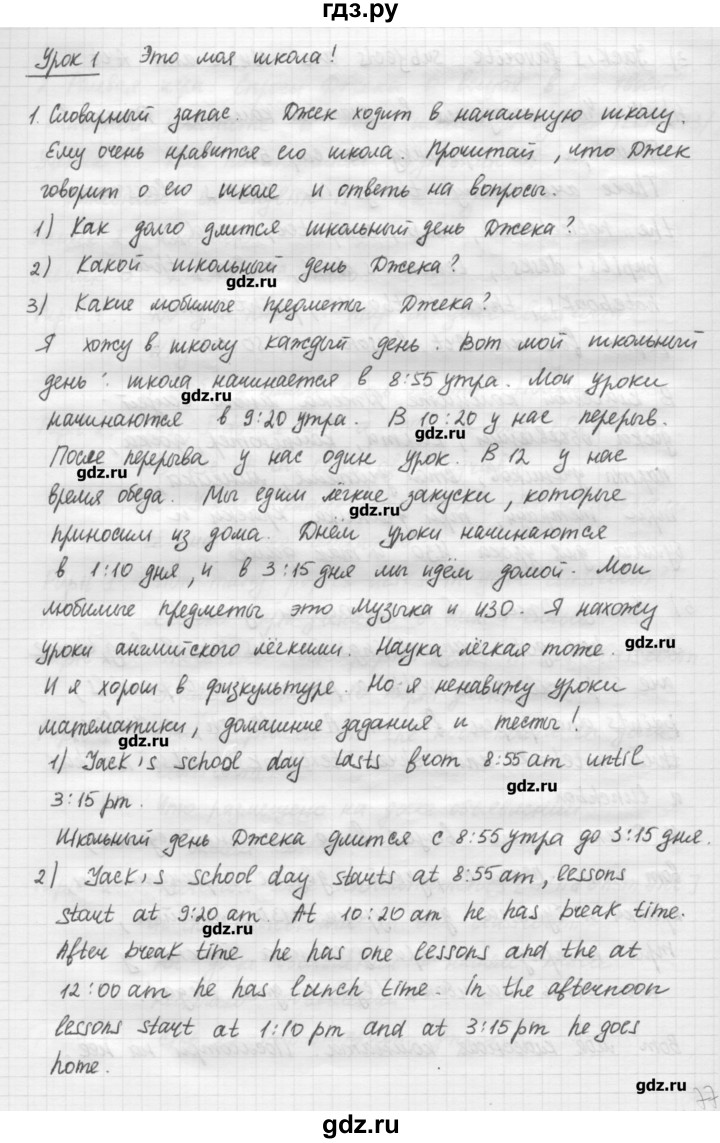 гдз.ру
Урок 1 Это моя школа!
1. Словарный запас. Джек ходит в начальную школу.
Ему очень нравится его школа. Прочитай, что Джек
говорит о его школе и ответь на вопросы.
1) Как долго длится школьный день Джека?
2) Какой школьный день Джека?
gdz.ru
3) Какие любимые предметы Джека?
Я хожу в школу каждый день. Вот мой школьный
день: школа начинается в 8:55 утра. Мои уроки
gdz.ru
начинаются в 9:20 утра. В 10:20 у нас перерыв.
gdz.ru
После перерыва у нас один урок. В 12 у нас
gdz.ru
время обеда. Мы едим лёгкие закуски, которые
gdz.ru
приносим из дома. Днём уроки начинаются
в 1:10 дня, и в 3:15 дня мы идём домой. Мои
любимые предметы это Музыка и ИЗО. Я нахожу
уроки английского лёгкими. Наука лёгкая тоже.
gdz.ru
И я хорош в физкультуре. Но я ненавижу уроки
математики, домашние задания и тесты!
gdz.ru
1) Jack,s school day lasts from 8:55 am until
gdz.ru
3:15 pm.
Школьный день Джека длится с 8:55 утра до 3:15 дня.
2) Jack,s school day starts at 8:55 am, lessons
start at 9:20 am. At 10:20 am he has break time.
gdz.ru
After break time he has one lessons and the at
12:00 am he has lunch time. In the afternoon
lessons start at 1:10 pm and at 3:15 pm he goes
home.
gdz.ru
77
gdz.ru